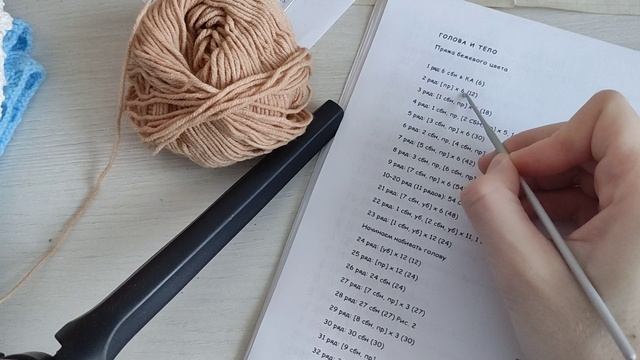 ГОЛОВА И ТЕЛО
Пряжа бежевого цвета
1 ряд: 6 сбн в КА (6)
2 ряд: [пр] x 6 (12)
3 ряд: [1 сбн, пр] x 6 (18)
4 ряд: 1 сбн, пр, [2 сбн, пр] x 5, 1
5 ряд: [3 сбн, пр] x 6 (30)
6 ряд: 2 сбн, пр, [4 сбн, пр]
7 ряд: [5 сбн, пр] x 6 (42)
8 ряд: 3 сбн, пр, [6 сбн, пр]
9 ряд: [7 сбн, пр] x 6 (54
10-20 ряд (11 рядов): 54 с
21 ряд: [7 сбн, уб] x 6 (48)
22 ряд: 1 сбн, уб, [2 сбн, уб] x 11, 1
23 ряд: [1 сбн, уб] x 12 (24)
Начинаем набивать голову
24 ряд: [уб] x 12 (12)
25 ряд: [пр] x 12 (24)
26 ряд: 24 сбн (24)
27 ряд: [7 сбн, пр] x 3 (27)
28 ряд: 27 сбн (27) Рис. 2
29 ряд: [8 сбн, пр] x 3 (30)
30 ряд: 30 сбн (30)
31 ряд: [9 сбн, пр]
32 ряд: